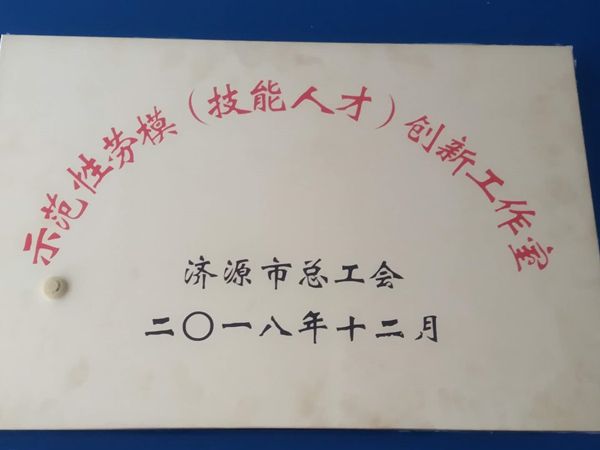 示范性劳模（技能人才）创新工作室
济源市总工会
二〇一八年十二月